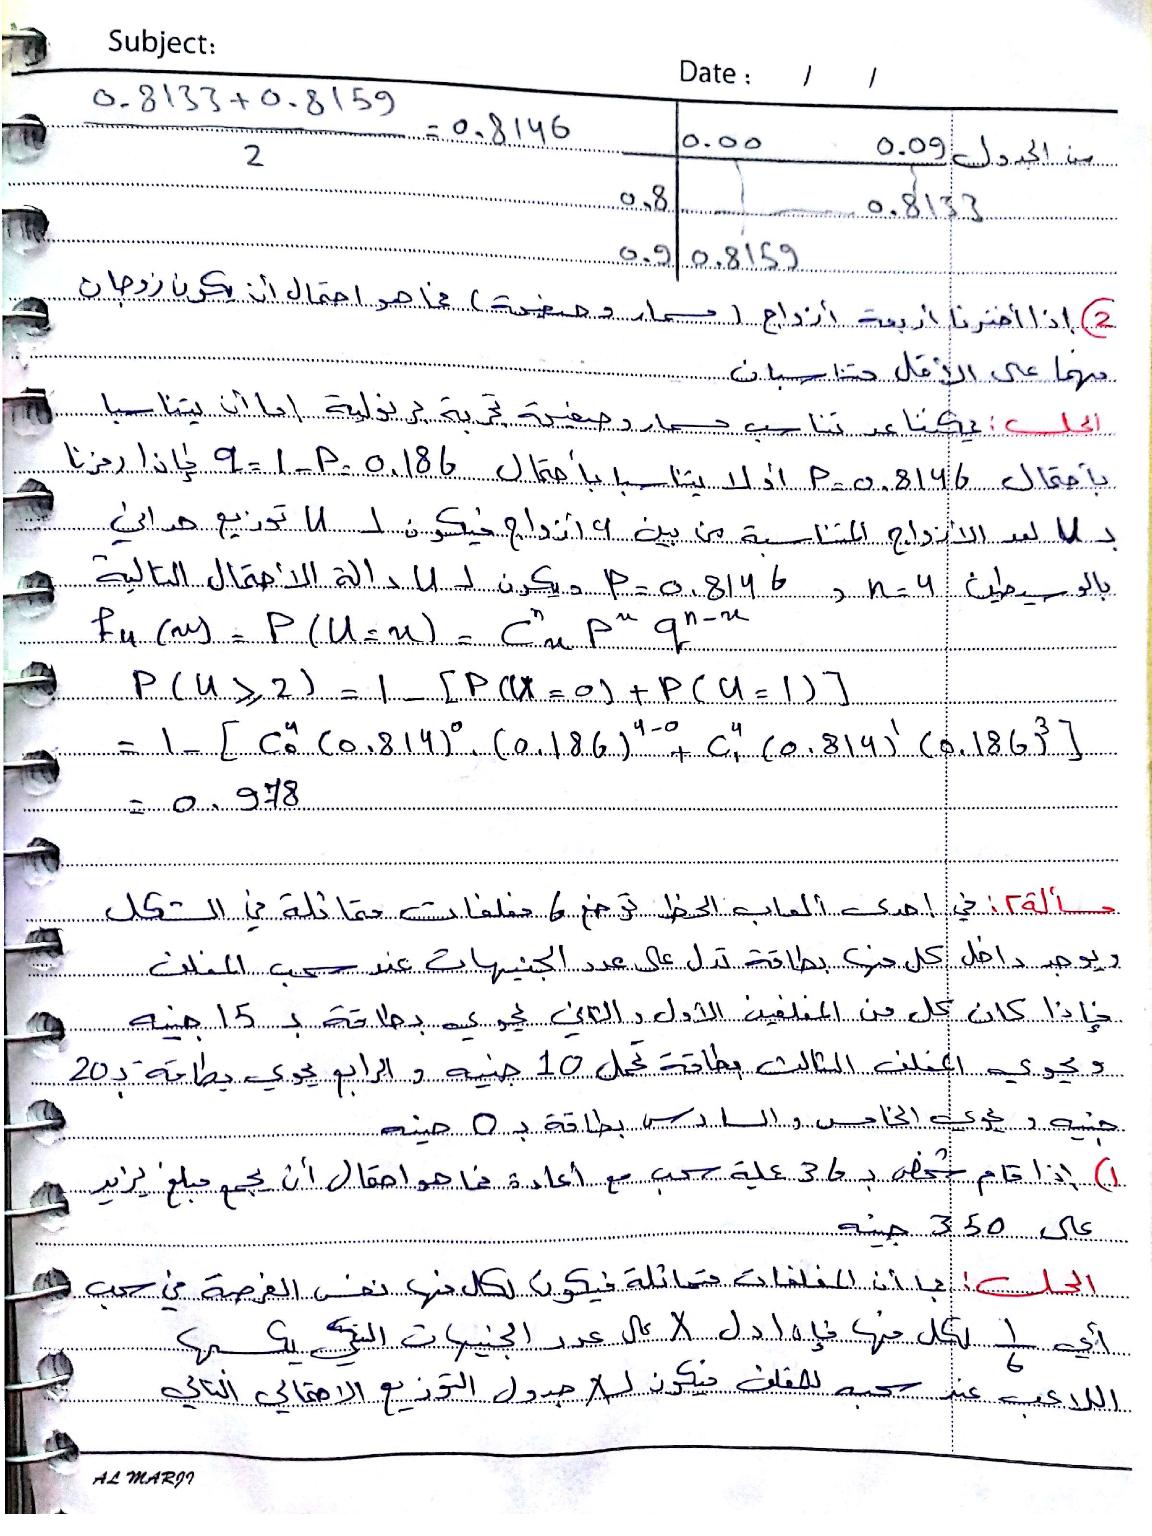 Subject:
Date : / /
0.8133+0.8159 / 2 = 0.8146
من الجدول 0.09 0.00
0.8 0.8133
0.9 0.8159
② إذا أخترنا أربعة أزواج (مسمار وصفيحة) فما هو احتمال أن يكون زوجان
منها على الأقل متناسبان
الحل: يمكننا عد تناسب مسمار وصفيحة تجربة برنولية إما أن يتناسبا
بأحتمال P=0.8146 أو لا يتناسبا بأحتمال q=1-P=0.186 فإذا رمزنا
بـ U لعد الأزواج المتناسبة من بين 4 أزواج فيكون لـ U توزيع حداني
بالوسيطين n=4 و P=0.8146 ويكون لـ U دالة الاحتمال التالية
fu(u) = P(U=u) = Cⁿu Pᵘ qⁿ⁻ᵘ
P(U⩾2) = 1-[P(U=0)+P(U=1)]
= 1-[C⁴₀ (0.814)⁰.(0.186)⁴⁻⁰ + C⁴₁ (0.814)¹ (0.186)³]
= 0.978
مسألة٢: في احدى ألعاب الحظ توضع 6 مغلفات متماثلة في الشكل
ويوجد داخل كل منها بطاقة تدل على عدد الجنيهات عند سحب المغلف
فإذا كان كل من المغلفين الأول والثاني يحوي بطاقة بـ 15 جنيه
ويحوي المغلف الثالث بطاقة تحمل 10 جنيه و الرابع يحوي بطاقة بـ 20
جنيه و يحوي الخامس والسادس بطاقة بـ 0 جنيه
١) إذا قام شخص بـ 36 عملية سحب مع أعادة فما هو احتمال أن يجمع مبلغ يزيد
على 350 جنيه
الحل: بما أن المغلفات متماثلة فيكون لكل منها نفس الفرصة في سحب
أي 1/6 لكل منها فإذا دل X على عدد الجنيهات التي يكسبها
اللاعب عند سحبه للمغلف فيكون لـ X جدول التوزيع الاحتمالي التالي
AL MARJI